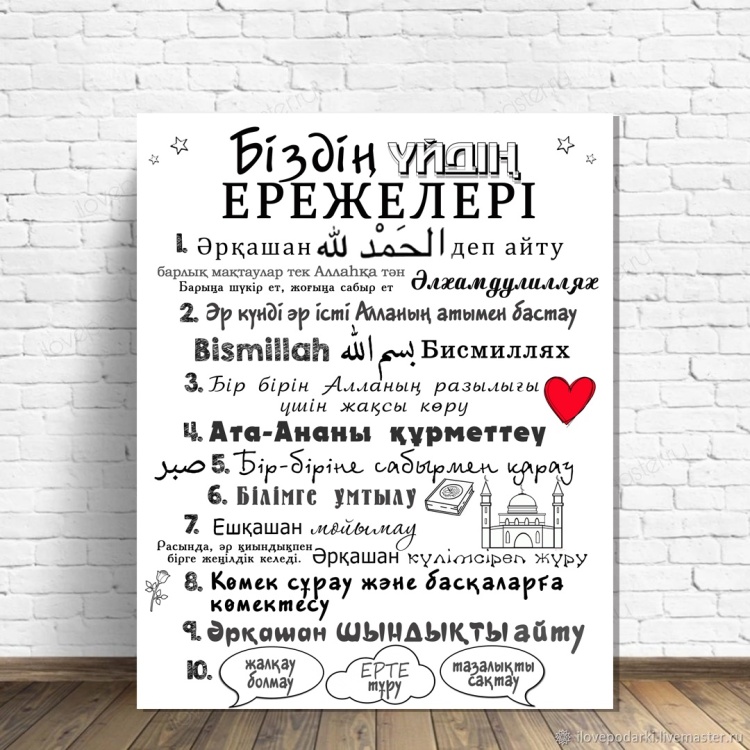 Біздің ҮЙДІҢ
ЕРЕЖЕЛЕРІ
1. Әрқашан الحَمْدُ لله деп айту
барлық мақтаулар тек Аллаһқа тән
Барыңа шүкір ет, жоғыңа сабыр ет Әлхамдулиллях
2. Әр күнді әр істі Алланың атымен бастау
Bismillah بسم الله Бисмиллях
3. Бір бірін Алланың разылығы
үшін жақсы көру
4. Ата-Ананы құрметтеу
صبر 5. Бір-біріне сабырмен қарау
6. Білімге ұмтылу
7. Ешқашан мойымау
Расында, әр қиындықпен
бірге жеңілдік келеді. Әрқашан күлімсіреп жүру
8. Көмек сұрау және басқаларға
көмектесу
9. Әрқашан ШЫНДЫҚТЫ айту
10. жалқау
болмау
ЕРТЕ
тұру
тазалықты
сақтау
ilovepodarki.livemaster.ru